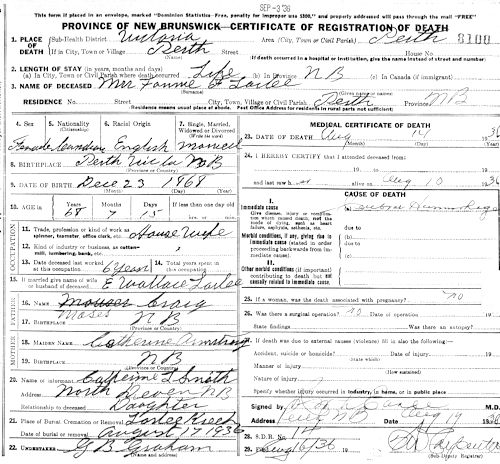 SEP - 3 '36
This form if placed in an envelope, marked "Dominion Statistics-Free, penalty for improper use $300," and properly addressed will pass through the mail "FREE"
PROVINCE OF NEW BRUNSWICK—CERTIFICATE OF REGISTRATION OF DEATH
1. PLACE OF DEATH Sub-Health District Victoria Area (City, Town or Civil Parish) Perth 8100
If in City, Town or Village Perth Street House No.
If death occurred in a hospital or institution, give the name instead of street and number
2. LENGTH OF STAY (in years, months and days)
(a) In City, Town or Civil Parish where death occurred Life (b) In Province N B (c) In Canada (if immigrant)
3. NAME OF DECEASED Mrs Fannie Larlee
(Given name or names)
RESIDENCE No. Street City, Town, Village or Civil Parish Perth Province NB
Residence means usual place of abode. Post Office Address for residents in rural parts not sufficient.
4. Sex 5. Nationality (Citizenship) 6. Racial Origin 7. Single, Married, Widowed or Divorced (Write the word)
Female Canadian English Married
8. BIRTHPLACE Perth Victoria N B
(Province or Country)
9. DATE OF BIRTH Dec 23 1868
(Month) (Day) (Year)
10. AGE in Years Months Days If less than one day old
68 7 15 hrs. or min.
OCCUPATION
11. Trade, profession or kind of work as spinner, teamster, office clerk, etc. House Wife
12. Kind of industry or business, as cotton-mill, lumbering, bank, etc.
13. Date deceased last worked at this occupation 14. Total years spent in this occupation
15. If married give name of wife or husband of deceased E Wallace Larlee
FATHER
16. NAME Moses Craig
17. BIRTHPLACE N B
(Province or Country)
MOTHER
18. MAIDEN NAME Catherine Armstrong
19. BIRTHPLACE N B
(Province or Country)
20. Name of informant Catherine L Smith
Address North Devon N B
Relationship to deceased Daughter
21. Place of Burial, Cremation or Removal Larlee Creek
Date of burial or removal August 17 1936
22. UNDERTAKER G B Graham
MEDICAL CERTIFICATE OF DEATH
23. DATE OF DEATH Aug 14 1936
(Month) (Day) (Year)
24. I HEREBY CERTIFY that I attended deceased from:
and last saw h alive on Aug 10 1936
CAUSE OF DEATH
I
Immediate cause
Give disease, injury or complication which caused death, not the mode of dying, such as heart failure, asphyxia, asthenia, etc.
(a)
due to
Morbid conditions, if any, giving rise to immediate cause (stated in order proceeding backwards from immediate cause).
(b)
due to
(c)
II
Other morbid conditions (if important) contributing to death but not causally related to immediate cause.
25. If a woman, was the death associated with pregnancy? no
26. Was there a surgical operation? no Date of operation
State findings Was there an autopsy?
27. If death was due to external causes (violence) fill in also the following:
Accident, suicide or homicide? Date of injury
(State which)
Manner of injury
Nature of injury
Specify whether injury occurred in industry, in home, or in public place
Signed by M.D.
Address Perth N B Date Aug 19 1936
28. S.D.R. No. 14
29. Filed Aug 16/36
(Sub-Deputy Registrar)